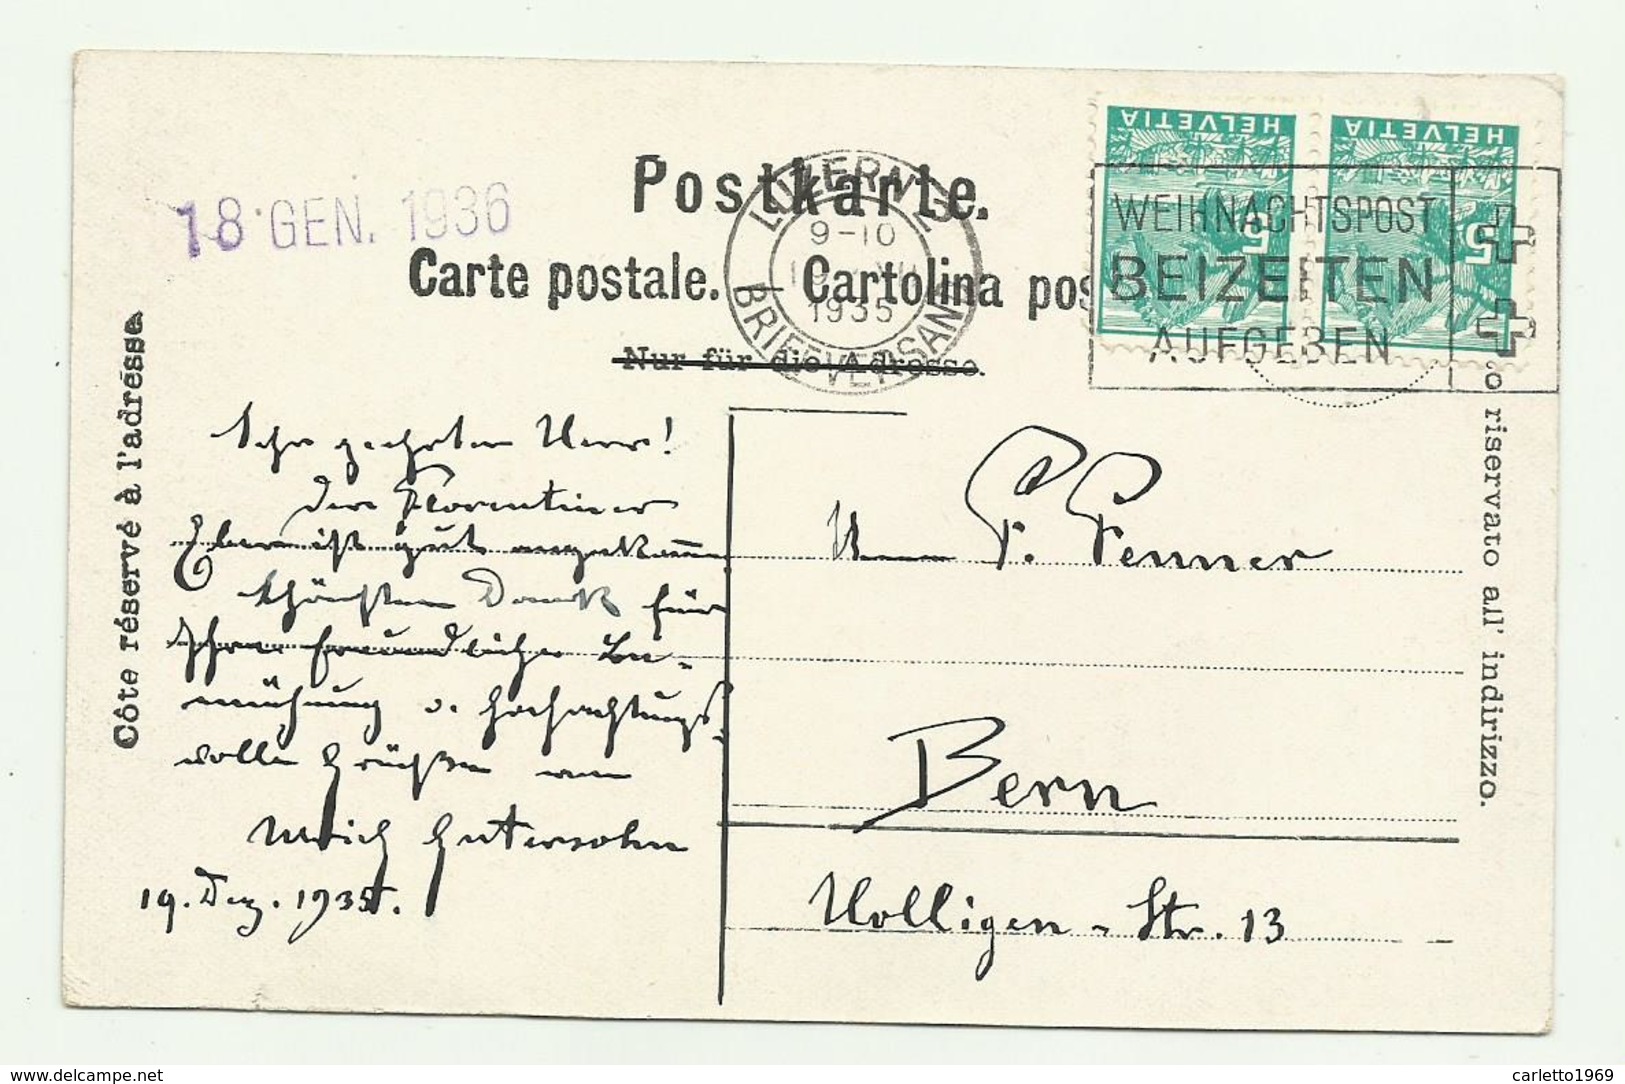 18 GEN. 1936
Postkarte.
Carte postale. Cartolina pos
Nur für die Adresse.
Côte réservé à l'adresse
o riservato all' indirizzo.
LUZERN
9-10
1935
BRIEFVERSAND
HELVETIA
HELVETIA
5
5
WEIHNACHTSPOST
BEIZEITEN
AUFGEBEN
Sehr geehrter Herr!
Der Florentiner
Eber ist gut angekomm
Schönsten Dank für
Ihre freundliche Be-
mühung u. hochachtungs-
volle Grüße von
Ulrich Gutersohn
19. Dez. 1935.
Herrn F. Fenner
Bern
Holligen-Str. 13
carletto1969
Delcampe.net